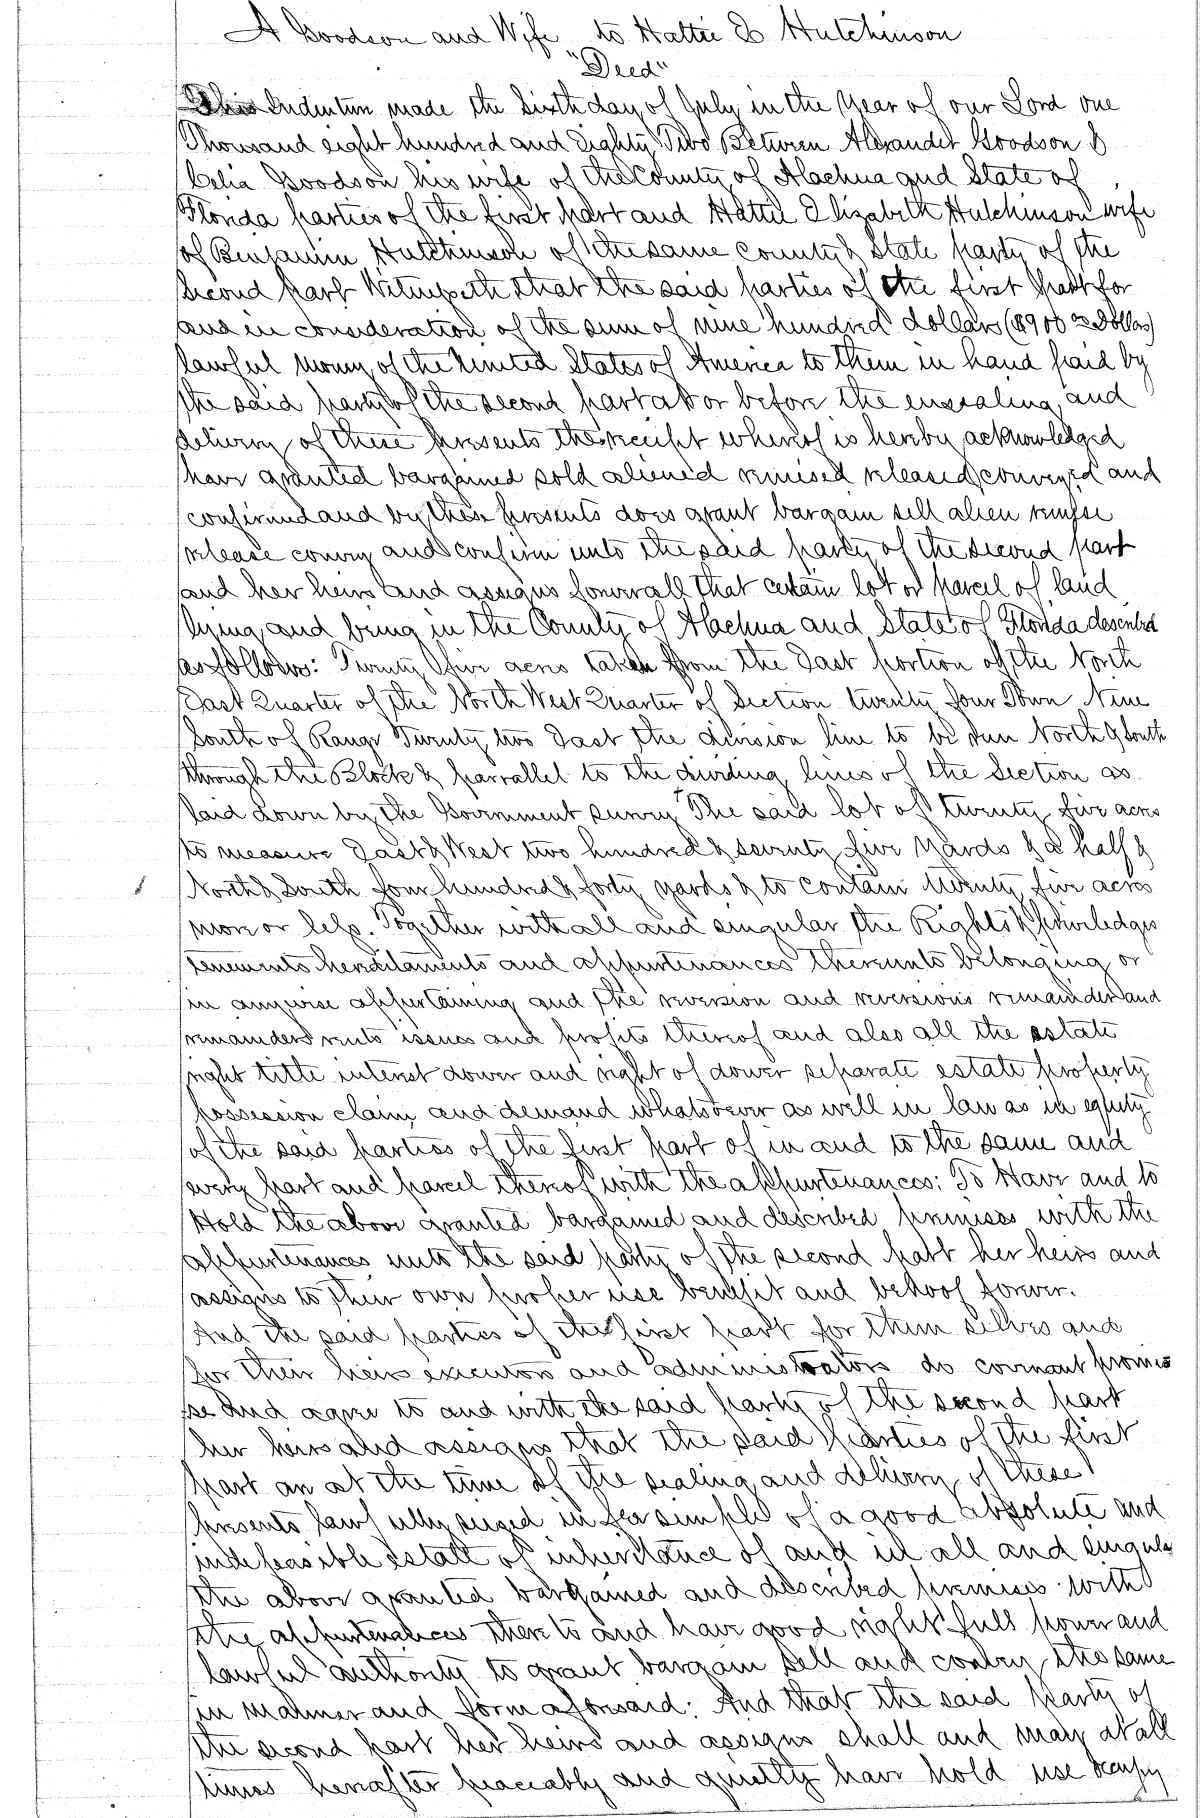 A Goodson and Wife to Hattie E Hutchinson
"Deed"
This Indenture made the Sixth day of July in the Year of our Lord one
Thousand eight hundred and Eighty Two Between Alexander Goodson &
Celia Goodson his wife of the County of Alachua and State of
Florida parties of the first part and Hattie Elizabeth Hutchinson wife
of Benjamin Hutchinson of the same county & State party of the
Second part Witnesseth that the said parties of the first part for
and in consideration of the sum of nine hundred dollars ($900 Dollars)
lawful money of the United States of America to them in hand paid by
the said party of the second part at or before the ensealing and
delivery of these presents the receipt whereof is hereby acknowledged
have granted bargained sold aliened remised released conveyed and
confirmed and by these presents does grant bargain sell alien remise
release convey and confirm unto the said party of the second part
and her heirs and assigns forever all that certain lot or parcel of land
lying and being in the County of Alachua and State of Florida described
as follows: Twenty five acres taken from the East portion of the North
East Quarter of the North West Quarter of Section twenty four Town Nine
South of Range Twenty two East the division line to be run North & South
through the Block & parrallel to the dividing lines of the Section as
laid down by the Government survey The said lot of twenty five acres
to measure East & West two hundred & seventy five Yards & a half &
North & South four hundred & forty yards & to contain twenty five acres
more or less. Together with all and singular the Rights & priviledges
tenements hereditaments and appurtenances thereunto belonging or
in anywise appertaining and the reversion and reversions remainder and
remainders rents issues and profits thereof and also all the estate
right title interest dower and right of dower separate estate property
possession claim and demand whatsoever as well in law as in equity
of the said parties of the first part of in and to the same and
every part and parcel thereof with the appurtenances: To Have and to
Hold the above granted bargained and described premises with the
appurtenances unto the said party of the second part her heirs and
assigns to their own proper use benefit and behoof forever.
And the said parties of the first part for them selves and
for their heirs executors and administrators do covenant promis
se and agree to and with the said party of the second part
her heirs and assigns that the said parties of the first
part are at the time of the sealing and delivery of these
presents lawfully seized in fee simple of a good absolute and
indefeasible estate of inheritance of and in all and singular
the above granted bargained and described premises with
the appurtenances there to and have good right full power and
lawful authority to grant bargain sell and convey the same
in manner and form aforesaid: And that the said party of
the second part her heirs and assigns shall and may at all
times hereafter peaceably and quietly have hold use occupy